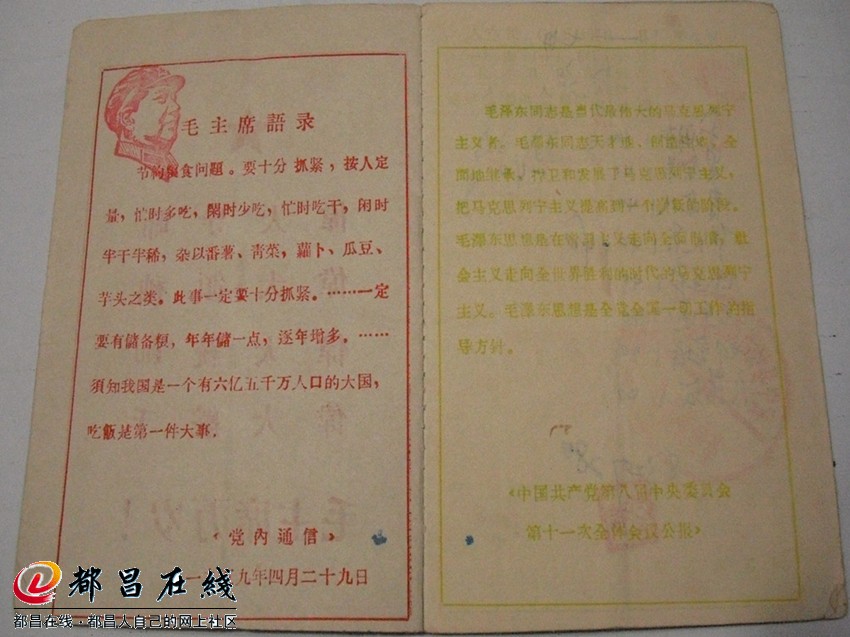 毛主席語录
节约粮食问题。要十分抓紧，按人定
量，忙时多吃，閑时少吃，忙时吃干，闲时
半干半稀，杂以番薯、青菜，蘿卜、瓜豆、
芋头之类。此事一定要十分抓紧。……一定
要有儲备粮，年年儲一点，逐年增多。……
須知我国是一个有六亿五千万人口的大国，
吃飯是第一件大事。
《党内通信》
一 九年四月二十九日
毛澤东同志是当代最伟大的马克思列宁
主义者。毛澤东同志天才地、创造性地、全
面地继承、捍卫和发展了马克思列宁主义，
把马克思列宁主义提高到一个崭新的阶段。
毛澤东思想是在帝国主义走向全面崩溃，社
会主义走向全世界胜利的时代的马克思列宁
主义。毛澤东思想是全党全国一切工作的指
导方针。
《中国共产党第八届中央委员会
第十一次全体会议公报》
都昌在線
都昌在线·都昌人自己的网上社区